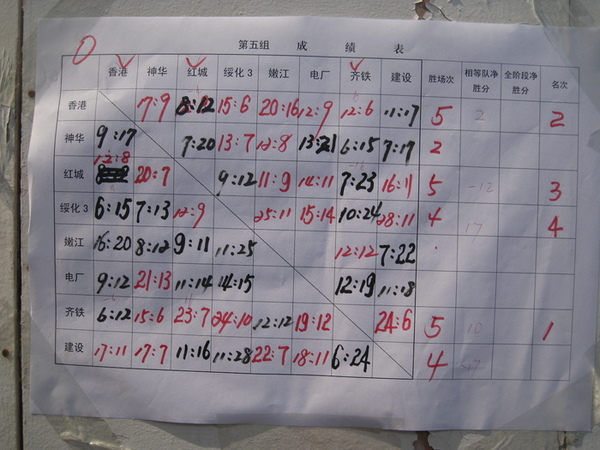 第五组 成绩表
香港 神华 红城 绥化3 嫩江 电厂 齐铁 建设 胜场次 相等队净胜分 全阶段净胜分 名次
香港 8:12 15:6 20:16 12:9 12:6 11:17 5 2 2
神华 9:17 7:20 13:7 12:8 6:15 7:17 2
红城 12:8 20:7 9:12 11:9 14:11 7:23 16:11 5 -12 3
绥化3 6:15 7:13 12:9 25:11 15:14 10:24 28:11 4 17 4
嫩江 16:20 8:12 9:11 11:25 12:12 7:22
电厂 9:12 21:13 11:14 14:15 12:19 11:18
齐铁 6:12 15:6 23:7 24:10 12:12 19:12 24:6 5 10 1
建设 17:11 17:7 11:16 11:28 22:7 18:11 6:24 4